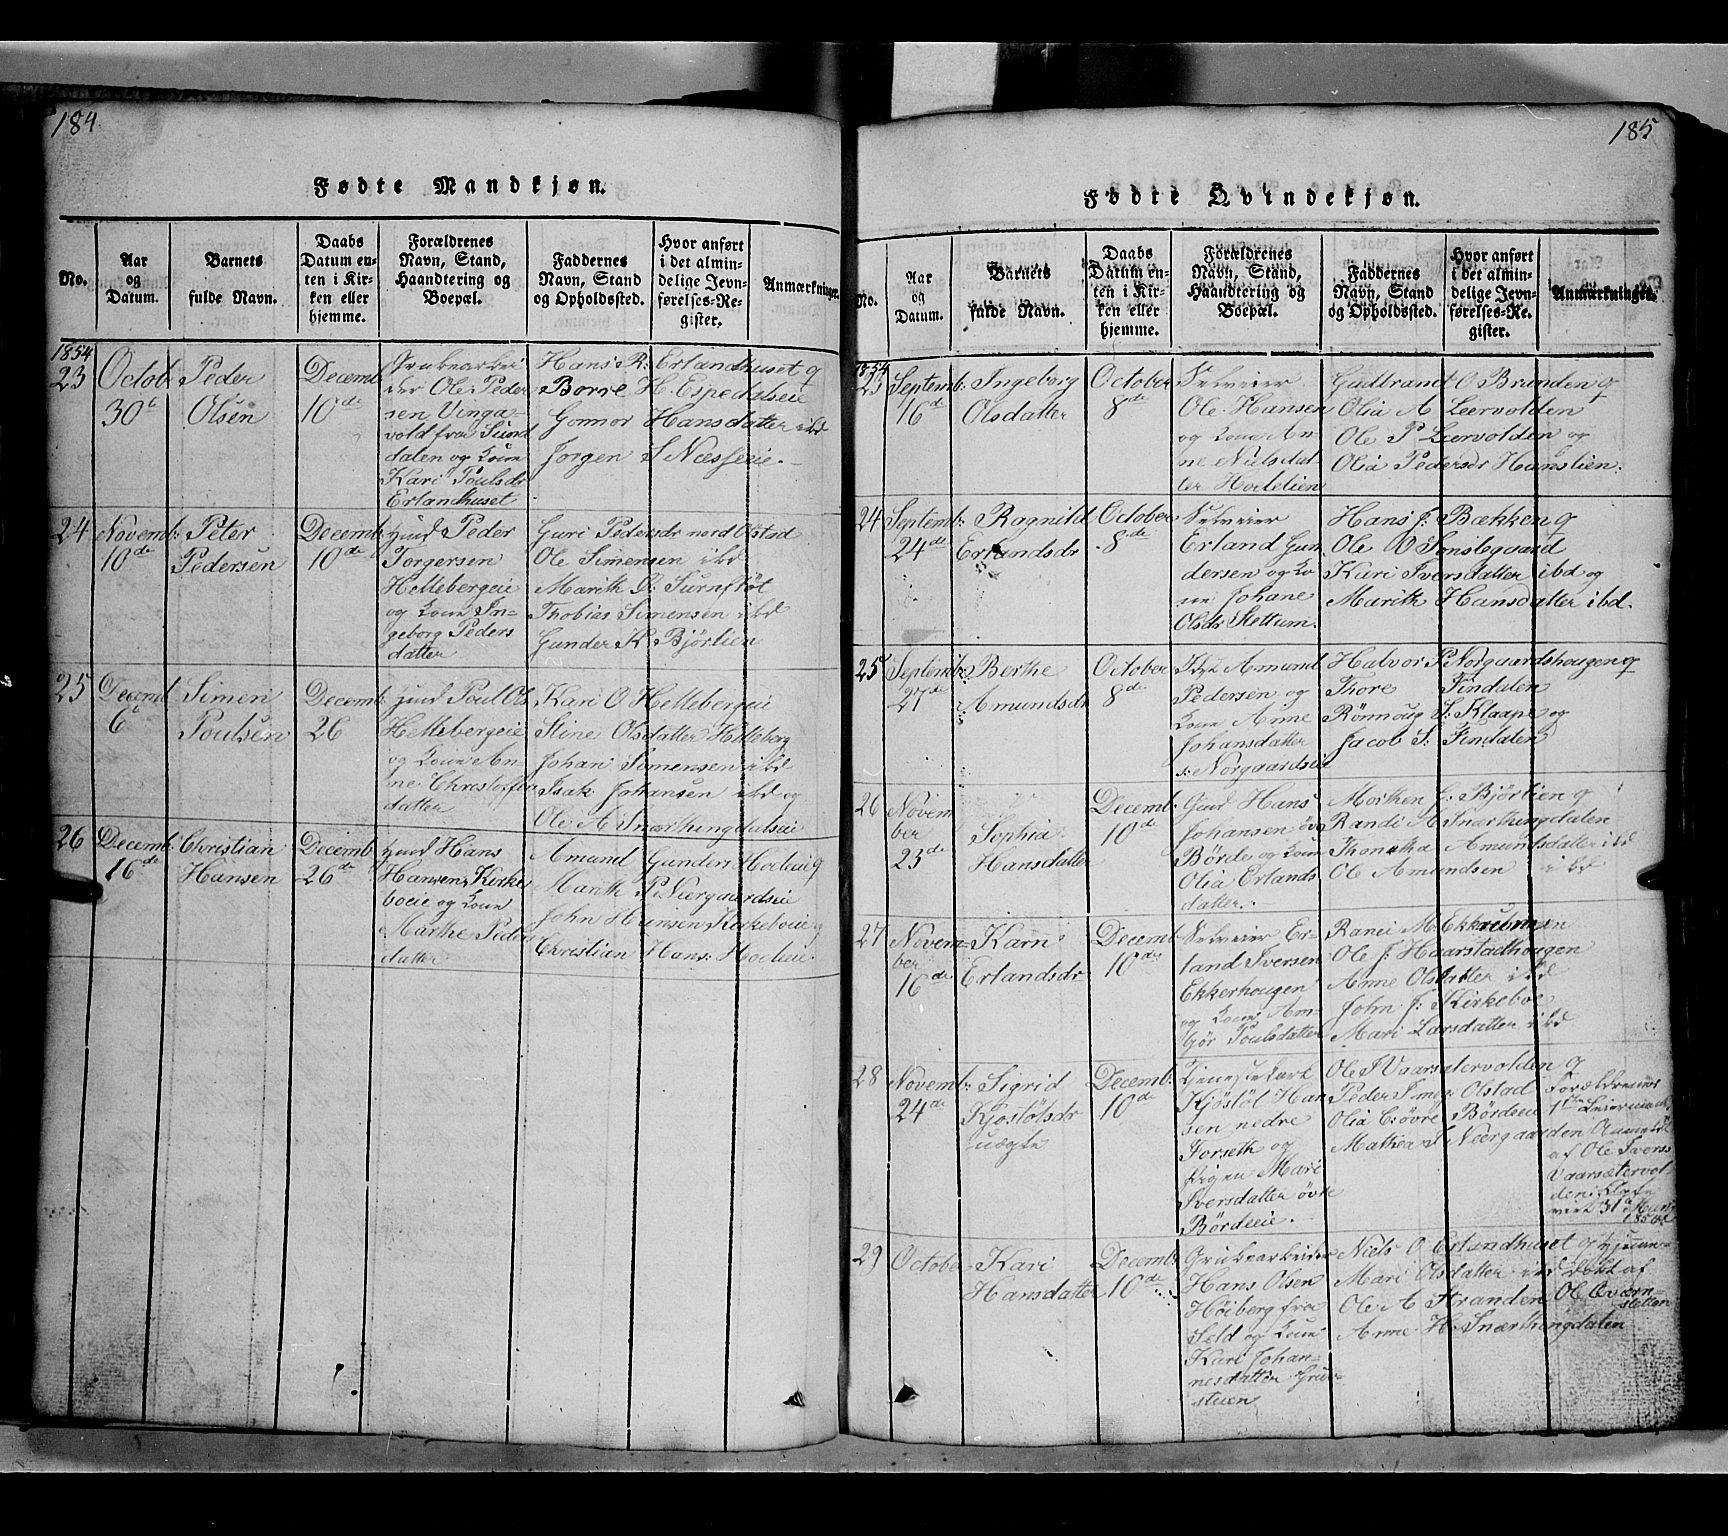 184
Fødte Mandkjøn.
No.
Aar
og
Datum.
Barnets
fulde Navn.
Daabs
Datum en-
ten i Kir-
ken eller
hjemme.
Forældrenes
Navn, Stand,
Haandtering og
Boepæl.
Faddernes
Navn, Stand
og Opholdssted.
Hvor anført
i det almin-
delige Jevn-
førelses-Re-
gister.
Anmærkninger.
1854
23
Octob
30te
Peder
Olsen
Decemb
10de
Grubearbei
der Ole Peder
sen Vinga
vold fra Sund
dalen og Kone
Kari Poulsdr
Erlandhuset
Hans R. Erlandhuset og
Borre H. Espedalseie
Gonnor Hansdatter ibd
Jørgen S Næsseie.
24
Novemb:
10de
Peter
Pedersen
Decemb:
10de
Huusd Peder
Torgersen
Hellebergeie
og Kone In-
geborg Peders
datter
Guri Pedersdr nord Olstad
Ole Simensen ibd
Marith O.
Thobias Simensen ibd
Gunder K. Bjørlien
25
Decemb
6te
Simen
Poulsen
Decemb:
26
Huusd Poul Ols
Hellebergeie
og Kone An-
ne Christoffers
datter
Kari O Hellebergeie
Stine Olsdatter Helleberg
Johan Simensen ibd
Isak Johansen ibd og
Ole A Snærthingdalseie
26
Decemb:
16de
Christian
Hansen
Decemb
26de
Huusd Hans
Hansen Kirke
boeie og Kone
Marthe Peders
datter
Amund Gunders Hoelieie og
Marith P. Nærgaardseie
John Hansen Kirkeboeie og
Christian Hans: Hoelieie.
185
Fødte Qvindekjøn.
No.
Aar
og
Datum.
Barnets
fulde Navn.
Daabs
Datum en-
ten i Kir-
ken eller
hjemme.
Forældrenes
Navn, Stand,
Haandtering og
Boepæl.
Faddernes
Navn, Stand
og Opholdssted.
Hvor anført
i det almin-
delige Jevn-
førelses-Re-
gister.
Anmærkninger.
1854
23
Septemb:
16de
Ingeborg
Olsdatter
October
8de
Selveier
Ole Hansen
og Kone An-
ne Nielsdat-
ter Hoelelien
Gudbrand O Brunden og
Olia A Leervolden
Ole P Leervolden og
Olia Pedersdr Hanslien.
24
Septemb:
24de
Ragnild
Erlandsdr
October
8de
Selveier
Erland Gun
dersen og Ko
ne Johane
Olsdr Slettum.
Hans J: Bækken og
Ole O Sønstegaard
Kari Iversdatter ibd og
Marith Hansdatter ibd.
25
Septemb:
27de
Berthe
Amundsdr
October
8de
Amund
Pedersen og
Kone Anne
Johansdatter
s. Norgaardseie
Halvor P. Norgaardshougen og
Thore Findalen
Rønnoug S. Klaape og
Jacob S. Findalen
26
Novem
ber
23de
Sophia
Hansdatter
Decemb:
10de
Gmd Hans
Johansen øv
Børde og Kone
Olia Erlands
datter.
Morthen J: Bjørlien og
Randi A Snærthingdalen
Thonetha Amundsdatter ibd
Ole Amundsen ibd
27
Novem-
ber
16de
Karn
Erlandsdr
Decemb-
10de
Selveier Er-
land Iversen
Ekkerhougen
og Kone Am-
bjør Poulsdatter
Ranei M Ekkerhougen
Ole J: Haarstadhougen
Anne Olsdatter ibd
John J: Kirkeboe
Mari Larsdatter ibd
28
Novemb:
24de
Sigrid
Kjøstølsdr
uægte
Decemb:
10de
Tjenestekarl
Kjøstøl Han
sen nedre
Forseth og
Pigen Mari
Iversdatter øvre
Bördeeie.
Ole I Vaarsætervolden og
Peder Simes: Olstad
Olia E: øvre Bördeeie
Mathea S Neergaarden
Forældrenes
1ste Leiermaal
Anmeldt
af Ole Ivers
Vaarsætervol
den
31te Marts
29
October
Kari
Hansdatter
Decemb:
10de
Grubearbeider
Hans Olsen
Høiberg fra
Seld og Kone
Kari Johan-
nesdatter Grue-
stuen
Niels O Erlandhuset og
Mari Olsdatter ibd
Ole A Stranden
Anne H. Snærthingdalen
Hjemme-
døbt af
Ol Qværn-
stetten